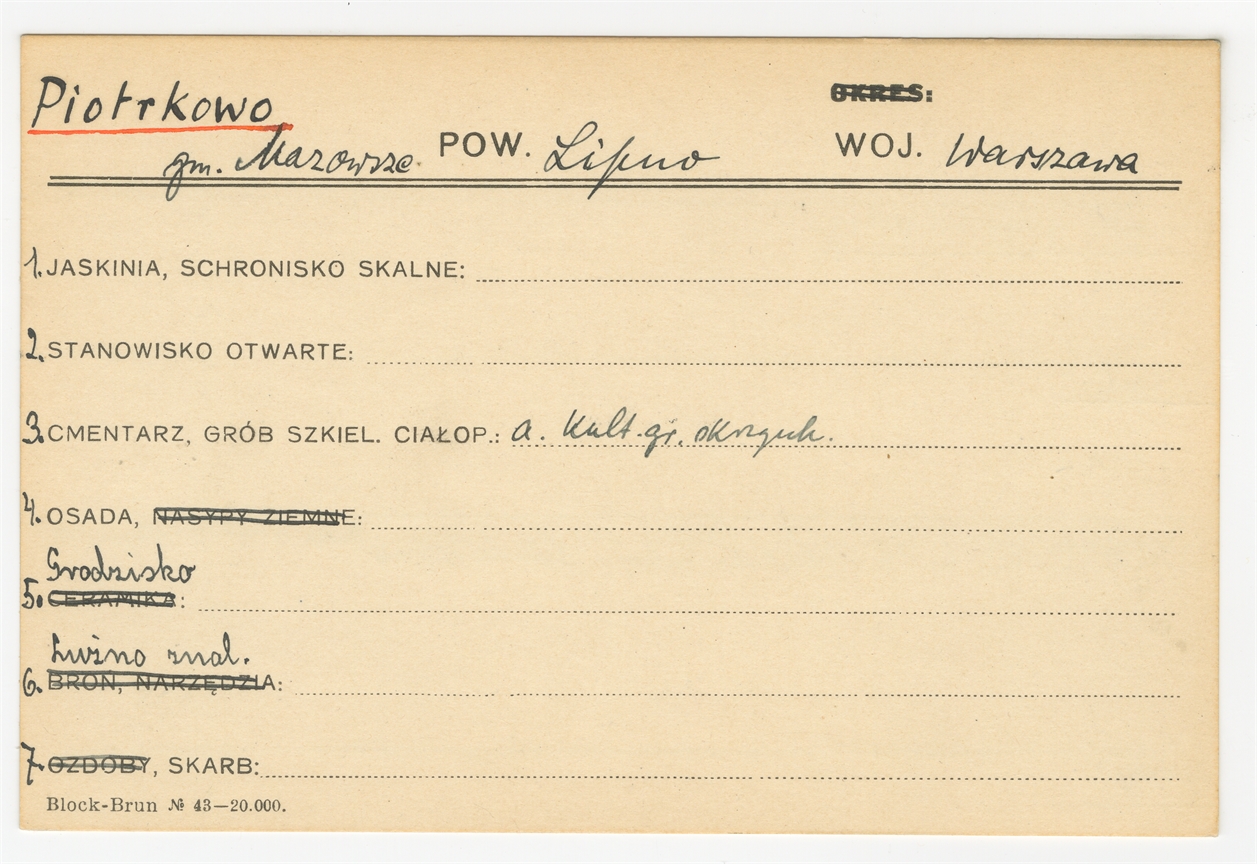 Piotrkowo
OKRES:
gm. Mazowsze. POW. Lipno WOJ. Warszawa
1. JASKINIA, SCHRONISKO SKALNE:
2. STANOWISKO OTWARTE:
3. CMENTARZ, GRÓB SZKIEL. CIAŁOP.: a. Kult. gr. skrzynk.
4. OSADA, NASYPY ZIEMNE:
Grodzisko
5. CERAMIKA:
Luźno znal.
6. BROŃ, NARZĘDZIA:
7. OZDOBY, SKARB:
Block-Brun № 43—20.000.